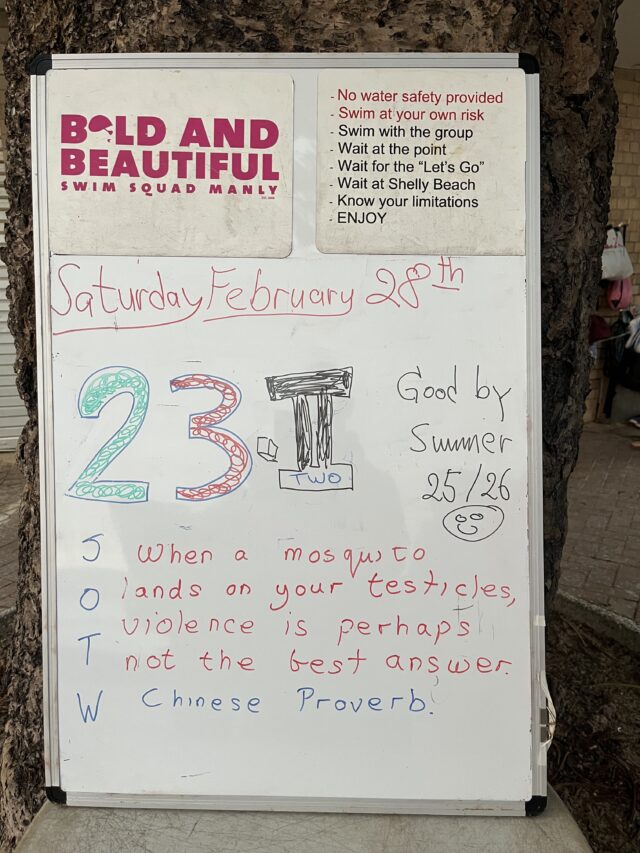 BOLD AND
BEAUTIFUL
SWIM SQUAD MANLY
- No water safety provided
- Swim at your own risk
- Swim with the group
- Wait at the point
- Wait for the “Let's Go”
- Wait at Shelly Beach
- Know your limitations
- ENJOY
Saturday February 28th
23.II
TWO
Good by
Summer
25/26
SOTW
When a mosquito
lands on your testicles,
violence is perhaps
not the best answer.
Chinese Proverb.